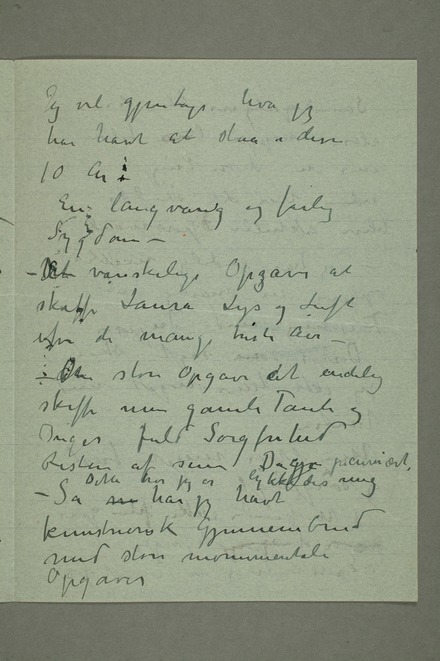 Jeg vil gjentage hva jeg
har havt at staa i disse
10 Aar:
En langvarig og farlig
Sygdom –
– Det vanskelige Opgave at
skaffe Laura Lys og Luft
efter de mange triste Aar –
– Den store Opgave at endelig
skaffe min gamle Tante og
Inger fuld Sorgfrihed
Resten af sine Dage pecuniært,
Dette har jeg og lykkedes mig
– Så har jeg havt
kunstnerisk Gjennembrud
med store monumentale
Opgaver